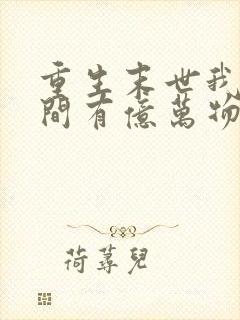 重生末世我
間有億萬物
荷蕁兒